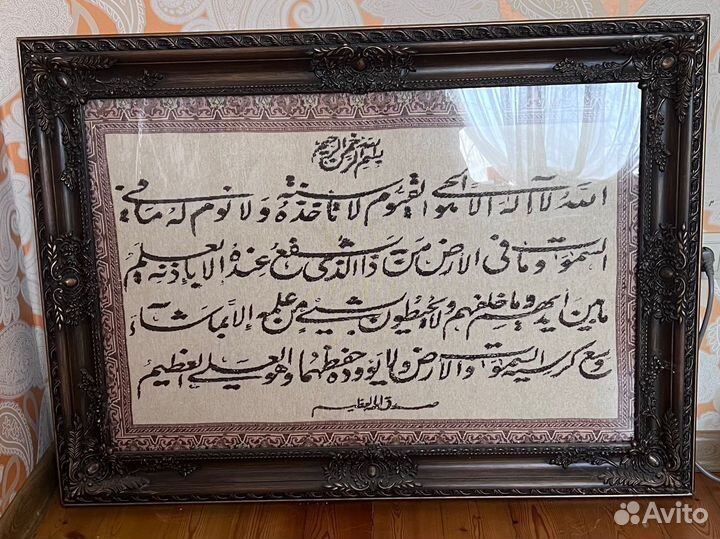 بسم الله الرحمن الرحيم
الله لا اله الا هو الحي القيوم لا تاخذه سنة ولا نوم له ما في
السموات وما فى الارض من ذا الذى يشفع عنده الا باذنه يعلم
ما بين ايديهم وما خلفهم ولا يحيطون بشيء من علمه الا بما شاء
وسع كرسيه السموات والارض ولا يؤوده حفظهما وهو العلي العظيم
صدق الله العظيم
Avito